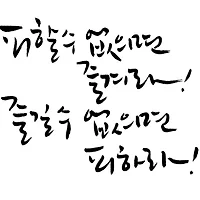 피할수 없으면
즐겨라~!
즐길수 없으면
피하라~!